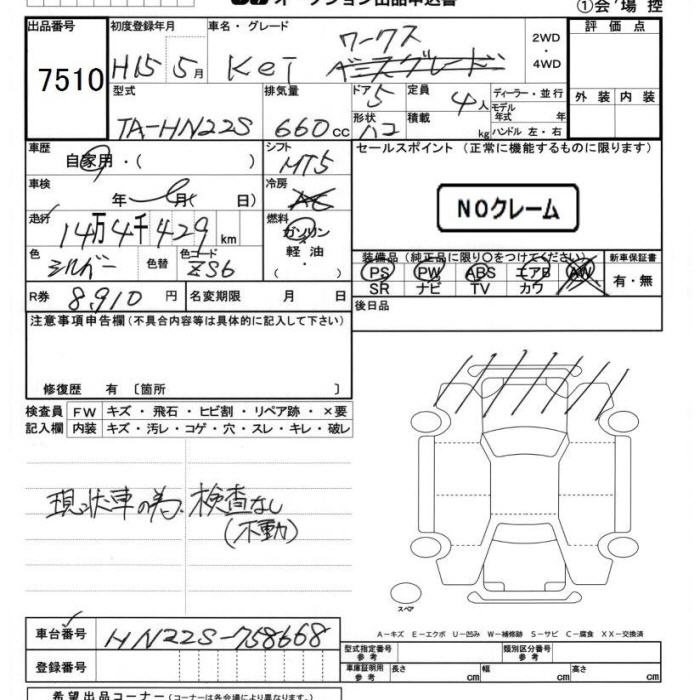 オークション出品申込書
①会場控
出品番号 初度登録年月 車名・グレード 2WD・4WD 評価点
7510 H15 5月 Kei ワークス
型式 排気量 ドア 5 定員 4人 ディーラー・並行 外装 内装
TA-HN22S 660cc 形状 ハコ 積載 kg モデル年式 年 ハンドル 左・右
車歴 自家用・( ) シフト MT5 セールスポイント (正常に機能するものに限ります)
車検 年 月( 日) 冷房 AC
NOクレーム
走行 14万4千429km 燃料 ガソリン 軽油・( )
色 シルバー 色替 色コード ZS6
装備品 (純正品に限り○をつけてください) 新車保証書
PS PW ABS エアB AW 有・無
SR ナビ TV カワ
R券 8,910円 名変期限 月 日 後日品
注意事項申告欄(不具合内容等は具体的に記入して下さい)
修復歴 有 〔箇所 〕
検査員 FW キズ・飛石・ヒビ割・リペア跡・×要
記入欄 内装 キズ・汚レ・コゲ・穴・スレ・キレ・破レ
現状車の為、検査なし
(不動)
スペア
A-キズ E-エクボ U-凹み W-補修跡 S-サビ C-腐食 XX-交換済
車台番号 HN22S-758668
型式指定番号参考 類別区分番号
登録番号 車庫証明用参考 長さ cm 幅 cm 高さ cm
希望出品コーナー (コーナーは各会場により異なります。)